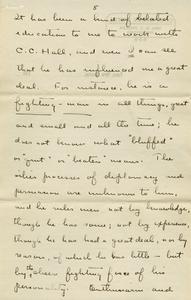 8
It has been a kind of belated
education to me to work with
C.C. Hall, and even I can see
that he has influenced me a great
deal. For instance, he is a
fighting-man in all things, great
and small and all the time; he
does not know what "bluffed"
or "quit" or "beaten" means. The
other processes of diplomacy and
persuasion are unknown to him,
and he rules men not by knowledge,
though he has some; not by experience,
though he has had a great deal, nor by
reason, of which he has little - but
by the sheer fighting force of his
personality. Enthusiasm and